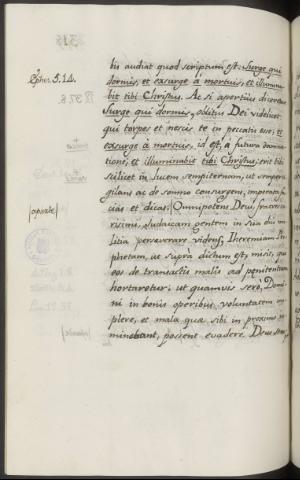 tis audiat quod scriptum est: Surge qui
Ephes. 5. 14. dormis, et exsurge a mortuis, et illumina-
bit tibi Christus. Ac si apertius diceret:
Surge qui dormis, oblitus Dei videlicet,
qui torpes et nescis te in peccatis esse; et
exsurge a mortuis, id est, a futura damna-
tione, et illuminabit tibi Christus, erit tibi
scilicet in lucem sempiternam, ut semper vi-
gilans ac de somno consurgens, imperata fa-
(aparte) cias et dicas: Omnipotens Deus, miseri-
ricors, Judaicam gentem in sua ma-
litia perseverare videns, Iheremiam Pro-
phetam, ut supra dictum est, misit, qui
eos de transactis malis ad penitentiam
hortaretur, ut quamvis sero, Domi-
ni in bonis operibus voluntatem im-
plere, et mala quæ sibi in proximo im-
minebant, possent evadere. Deus